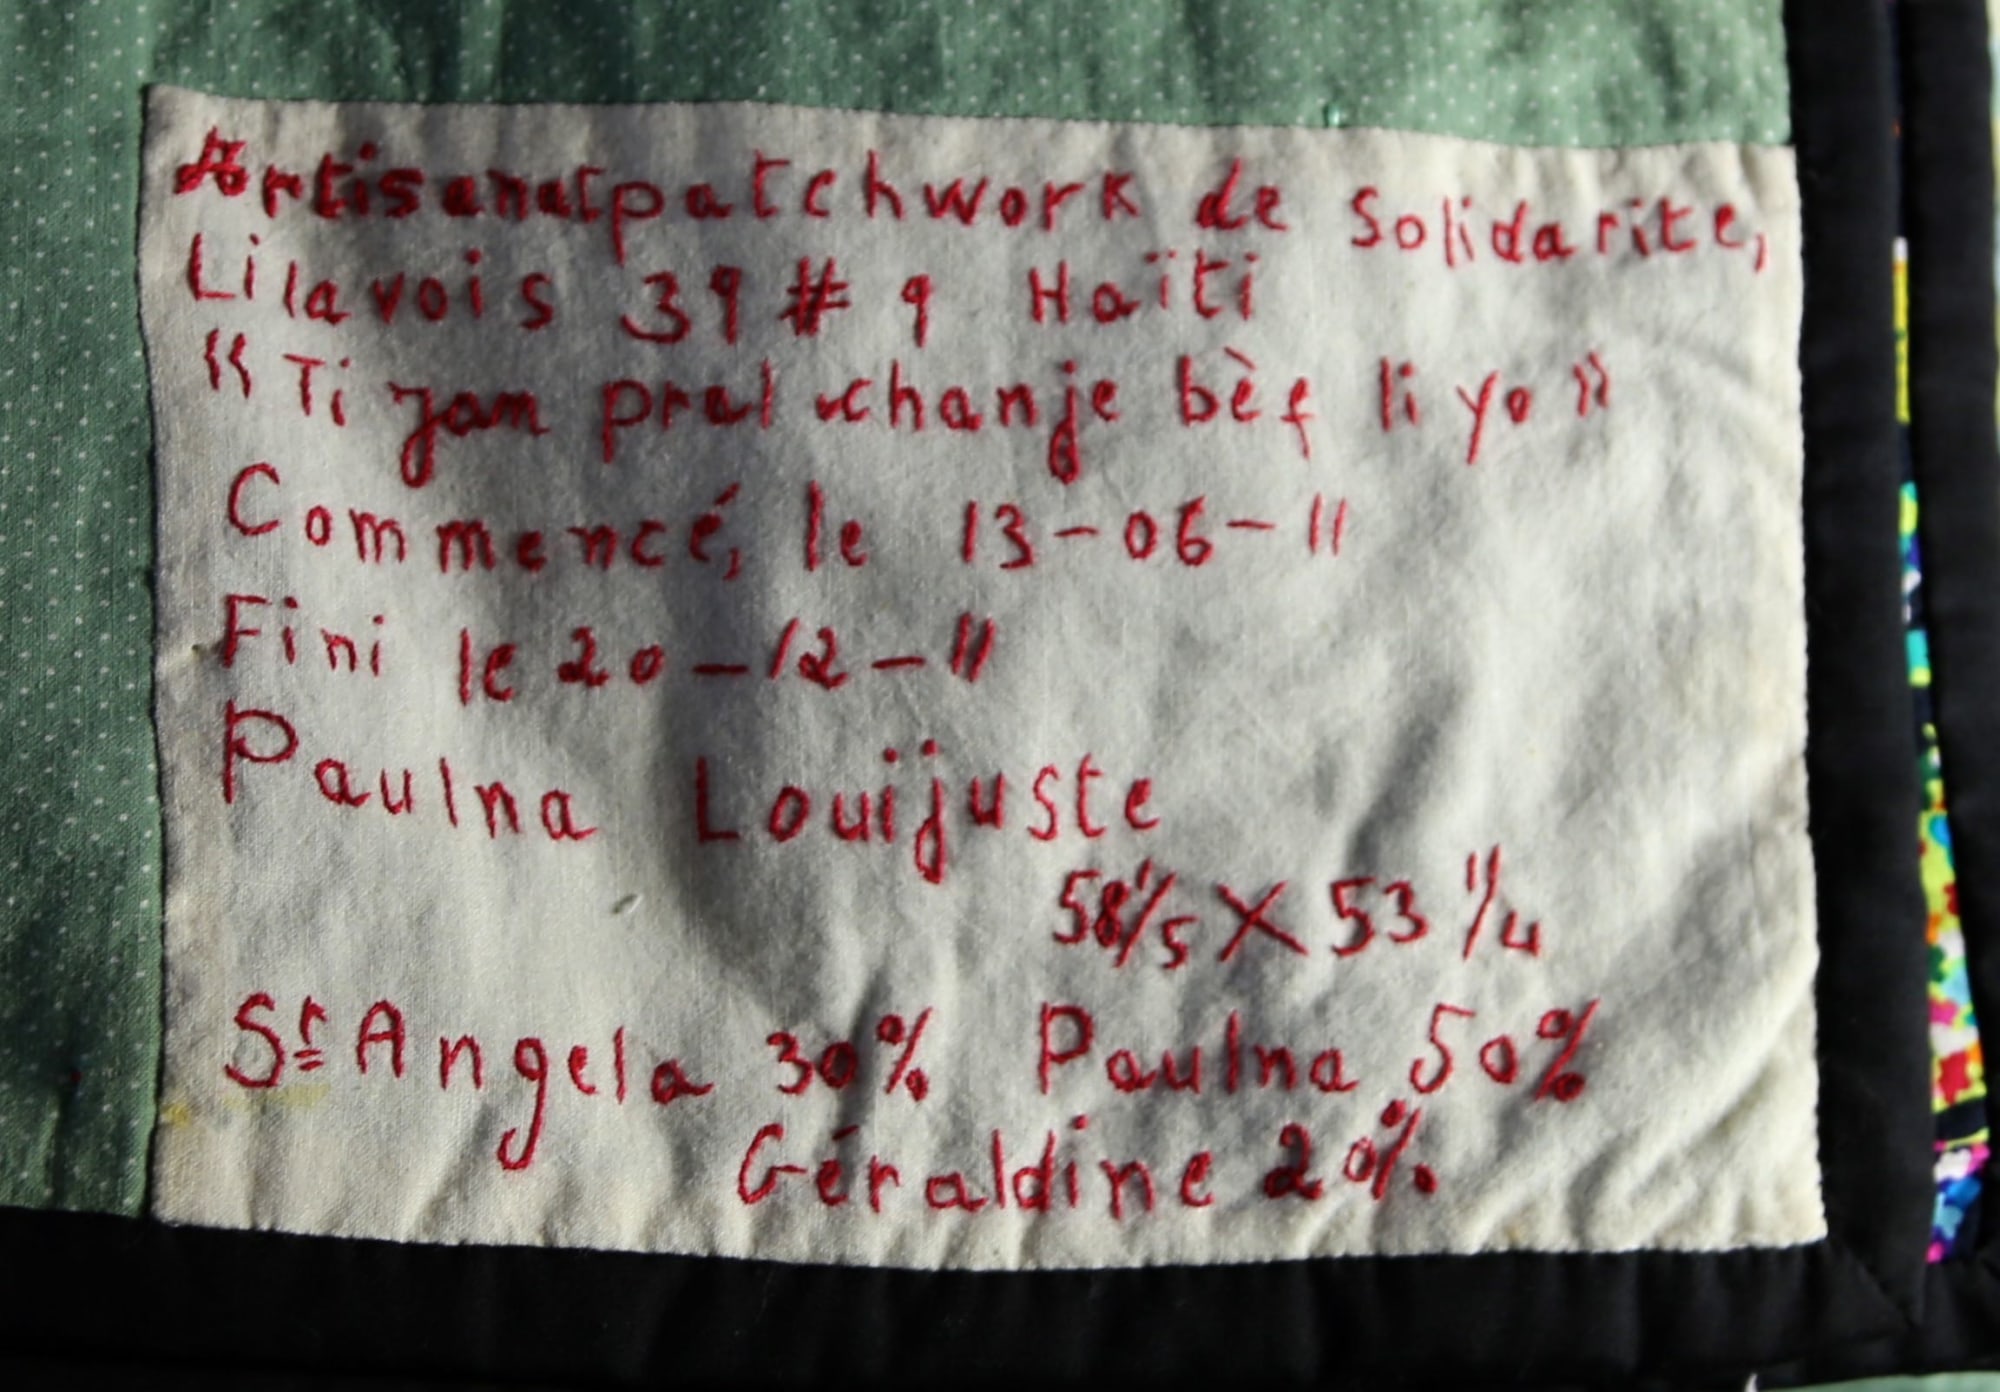 Artisanat patchwork de Solidarite,
Lilavois 39 # 9 Haïti
« Ti jan pral chanje bèf li yo »
Commencé, le 13-06-11
Fini le 20-12-11
Paulna Louijuste
58"/5 X 53 "/4
Sr Angela 30% Paulna 50%
Géraldine 20%